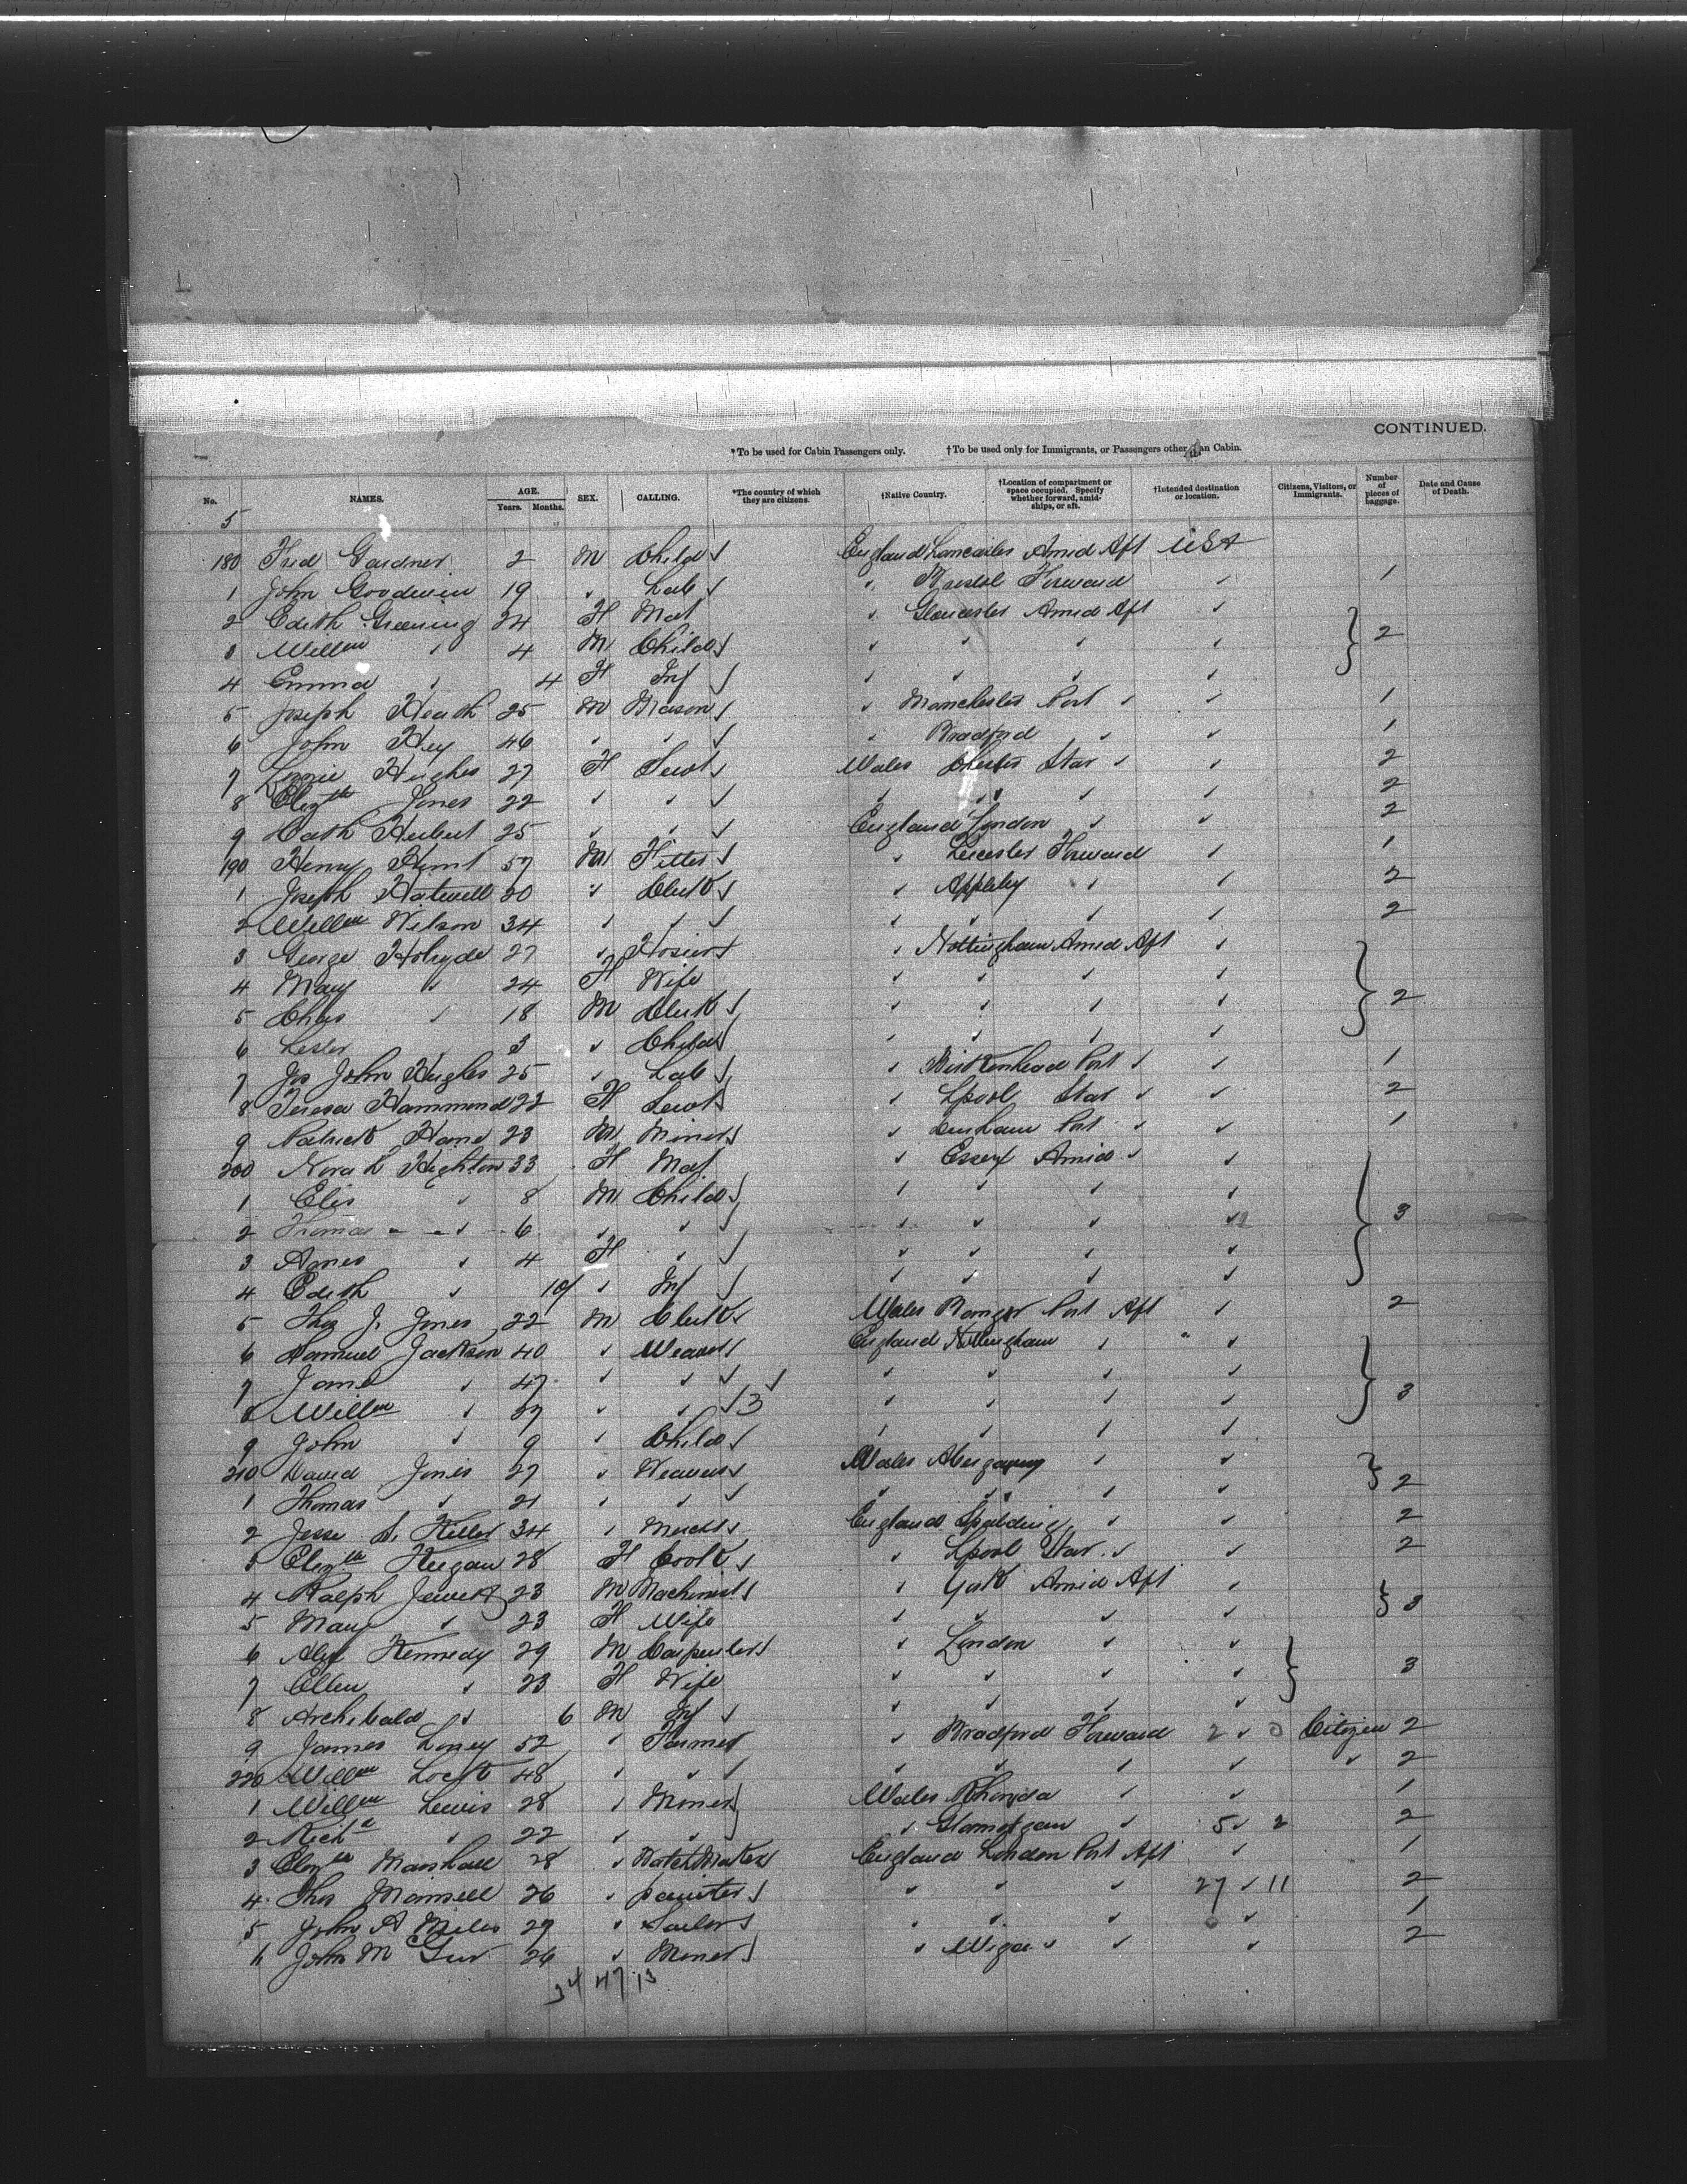 CONTINUED.
*To be used for Cabin Passengers only. †To be used only for Immigrants, or Passengers other than Cabin.
No. NAMES. AGE. Years. Months. SEX. CALLING. *The country of which they are citizens. †Native Country. †Location of compartment or space occupied. Specify whether forward, amidships, or aft. †Intended destination or location. Citizens, Visitors, or Immigrants. Number of pieces of baggage. Date and Cause of Death.
5
180 Fred Gardner 2 M Child England Lancaster Amid Aft USA
1 John Goodwin 19 " Lab " Bristol Forward " 1
2 Edith Greening 24 F Mat " Gloucester Amid Aft "
3 Willm " 4 M Child " " " " } 2
4 Emma " 4 F Inf " " " "
5 Joseph Heath 25 M Mason " Manchester Port " " 1
6 John Hey 46 " " " Bradford " " 1
7 Hughes 27 F Servt Wales Chester Star " " 2
8 Elizth Jones 22 " " " " " " 2
9 Cath Herbert 25 " " England London " " 2
190 Henry Hunt 57 M Fitter " Leicester Forward " 1
1 Joseph 20 " Clerk " Appleby " " 2
2 Willm Wilson 34 " " " " " " 2
3 George Holryde 27 " Hosier " Nottingham Amid Aft "
4 Mary " 24 F Wife " " " "
5 Chas " 18 M Clerk " " " " } 2
6 Lester " 3 " Child " " " "
7 Jos John Hughes 25 " Lab " Birkenhead Port " " 1
8 Teresa Hammond 22 F Servt " Lpool Star " " 2
9 Patrick 23 M Miner " Durham Port " " 1
200 Norah Highton 33 F Mat " Essex Amid " "
1 " 8 M Child " " " "
2 Thomas " 6 " " " " " " } 3
3 Agnes " 4 F " " " " "
4 Edith " 10 " Inf " " " "
5 Thos J. Jones 22 M Clerk Wales Bangor Port Aft " 2
6 Samuel Jackson 40 " Weaver England Nottingham " " "
7 " 47 " " " " " "
8 Willm " 37 " " 3 " " " " } 3
9 John " 9 " Child " " " "
210 David Jones 27 " Weaver Wales " "
1 Thomas " 21 " " " " " " } 2
2 Jesse Killer 34 " Mercht England Spalding " " 2
3 Elizth Keegan 28 F Cook " Lpool Star " " 2
4 Ralph Jewett 23 M Machinist " York Amid Aft "
5 Mary " 23 F Wife " " " " } 3
6 Alex Kennedy 29 M Carpenter " London " "
7 Ellen " 23 F Wife " " " " } 3
8 Archibald " 6 M Inf " " " "
9 James Loney 52 " Farmer " Bradford Forward 2 " 0 Citizen 2
220 Willm 48 " " " " " " " 2
1 Willm Lewis 28 " Miner Wales Rhondda " " 1
2 Richd " 22 " " " Glamorgan " 5 " 2 2
3 Marshall 28 " Watch Maker England London Port Aft " 1
4 Thos Mansell 26 " painter " " " 27 " 11 2
5 John A Miles 29 " Sailor " " " " 1
6 John 26 " Miner " Wigan " " " 2
34 47 13